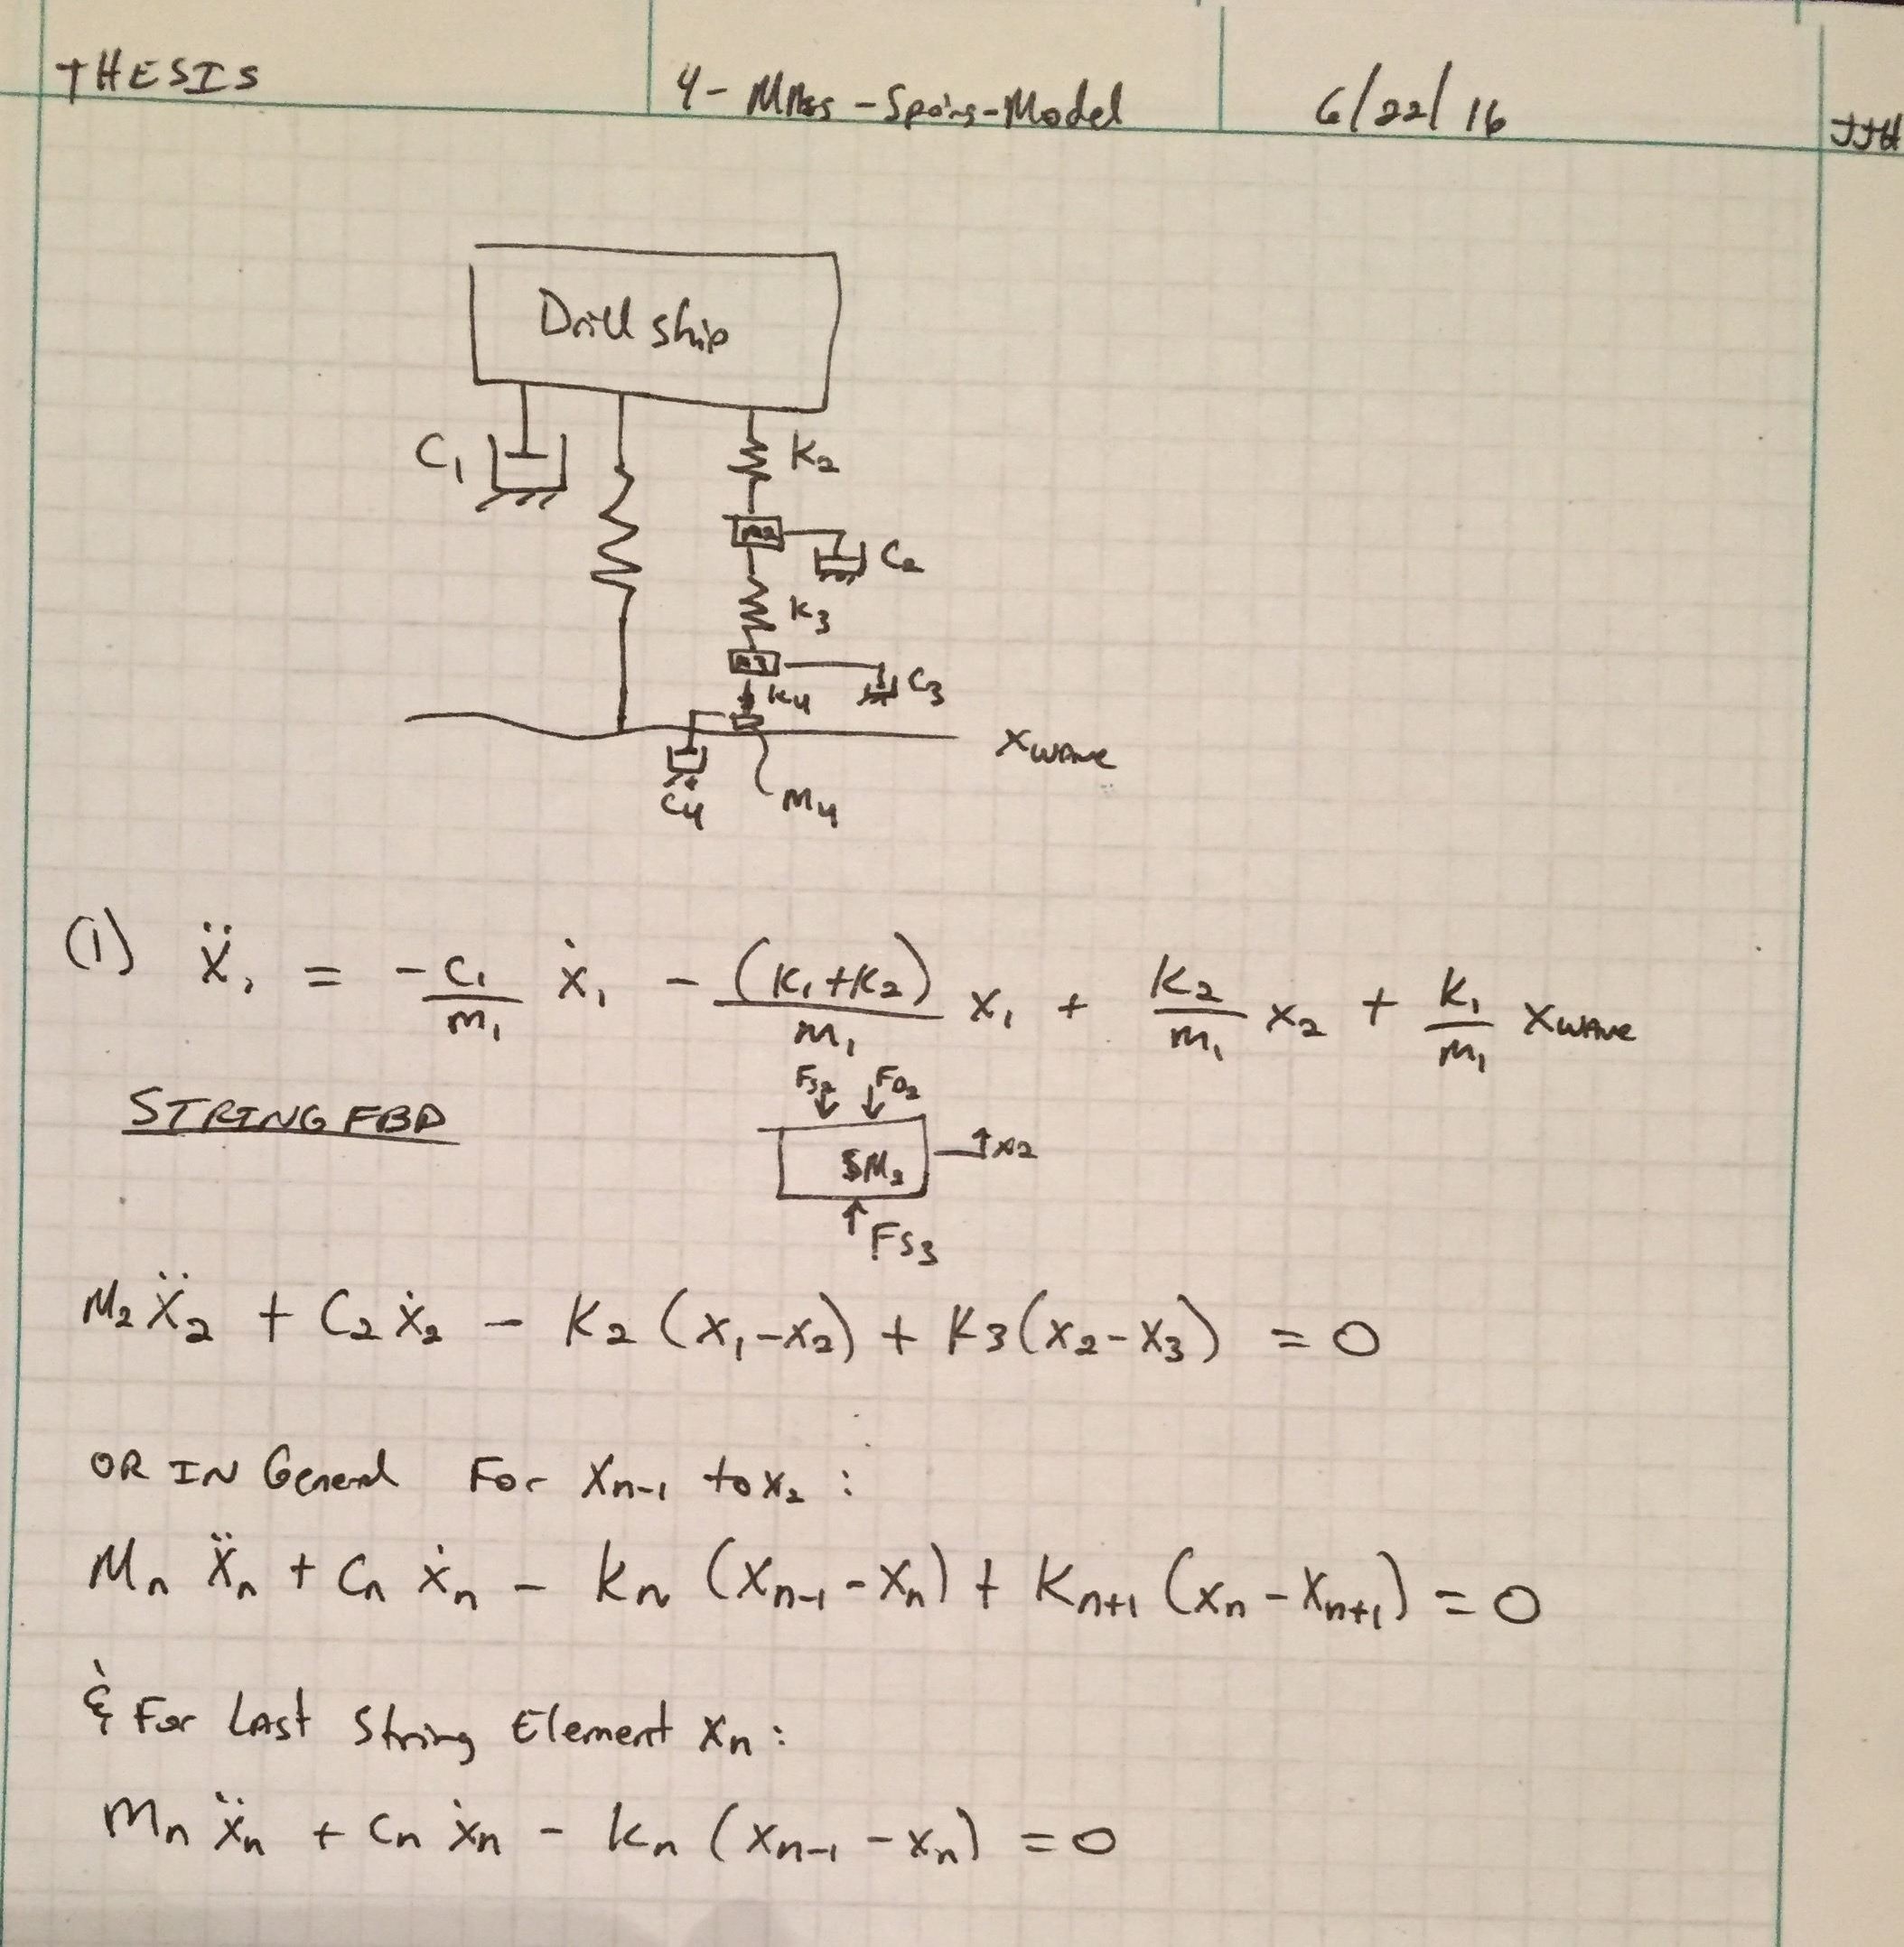 THESIS 4-Mass-Spring-Model 6/22/16 JJH
Drill ship
C₁ K₂
m2 C₂
K₃
m3 C₃
K₄
xwave
C₄ M₄
(1) ẍ₁ = -C₁/m₁ ẋ₁ - (K₁+K₂)/m₁ x₁ + K₂/m₁ x₂ + K₁/m₁ xwave
STRING FBD
Fs₂ FD₂
M₂ x2
Fs₃
M₂ẍ₂ + C₂ẋ₂ - K₂(x₁-x₂) + K₃(x₂-x₃) = 0
OR IN General For Xn-1 to x₂ :
Mn ẍn + Cn ẋn - kn (xn-1 - xn) + Kn+1 (xn - xn+1) = 0
& For LAst String Element Xn :
Mn ẍn + Cn ẋn - kn (xn-1 - xn) = 0